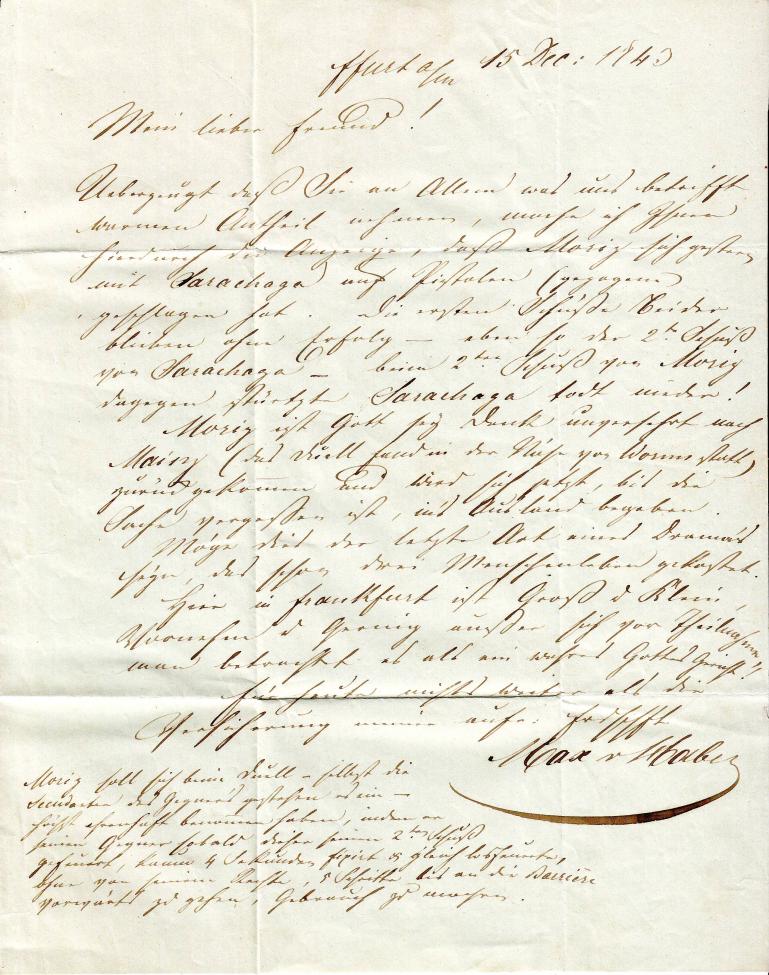 ffurt a/m 15 Dec: 1843
Mein lieber Freund!
Ueberzeugt daß Sie an Allem was uns betrifft
warmen Antheil nehmen, mache ich Ihnen
hierdurch die Anzeige, daß Moriz sich gestern
mit Sarachaga auf Pistolen (gezogene)
geschlagen hat. Die ersten Schüße Beider
blieben ohne Erfolg — eben so der 2te Schuß
von Sarachaga — beim 2ten Schuß von Moriz
dagegen stürzte Sarachaga todt nieder!
Moriz ist Gott sey Dank unversehrt nach
Mainz (das Duell fand in der Nähe von Worms statt)
zurück gekommen und wird sich jetzt, bis die
Sache vergessen ist, ins Ausland begeben.
Möge dies der letzte Act eines Drama's
seyn, das schon drei Menschenleben gekostet.
Hier in Frankfurt ist Groß & Klein,
Vornehm & Gering außer sich vor Theilnahme
man betrachtet es als ein wahres Gottes Gericht!!
Für heute nichts weiter als die
Versicherung meiner aufr: Frdschft
Max v Haber
Moriz soll sich beim Duell — selbst die
Secundanten des Gegners gestehen es ein —
höchst ehrenhaft benommen haben, indem er
seinen Gegner sobald dieser seinen 2ten Schuß
gefeuert, kaum 4 Sekunden fixirt & gleich losfeuerte,
ohne von seinem Rechte, 5 Schritte bis an die Barrière
vorwärts zu gehen, Gebrauch zu machen.